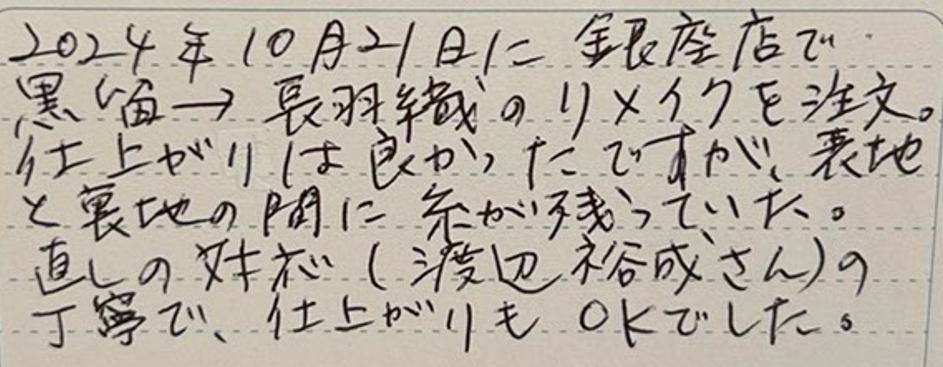 2024年10月21日に 銀座店で
黒紬→長羽織のリメイクを注文。
仕上がりは良かったですが、表地
と裏地の間に糸が残っていた。
直しの対応(渡辺裕成さん)の
丁寧で、仕上がりもOKでした。